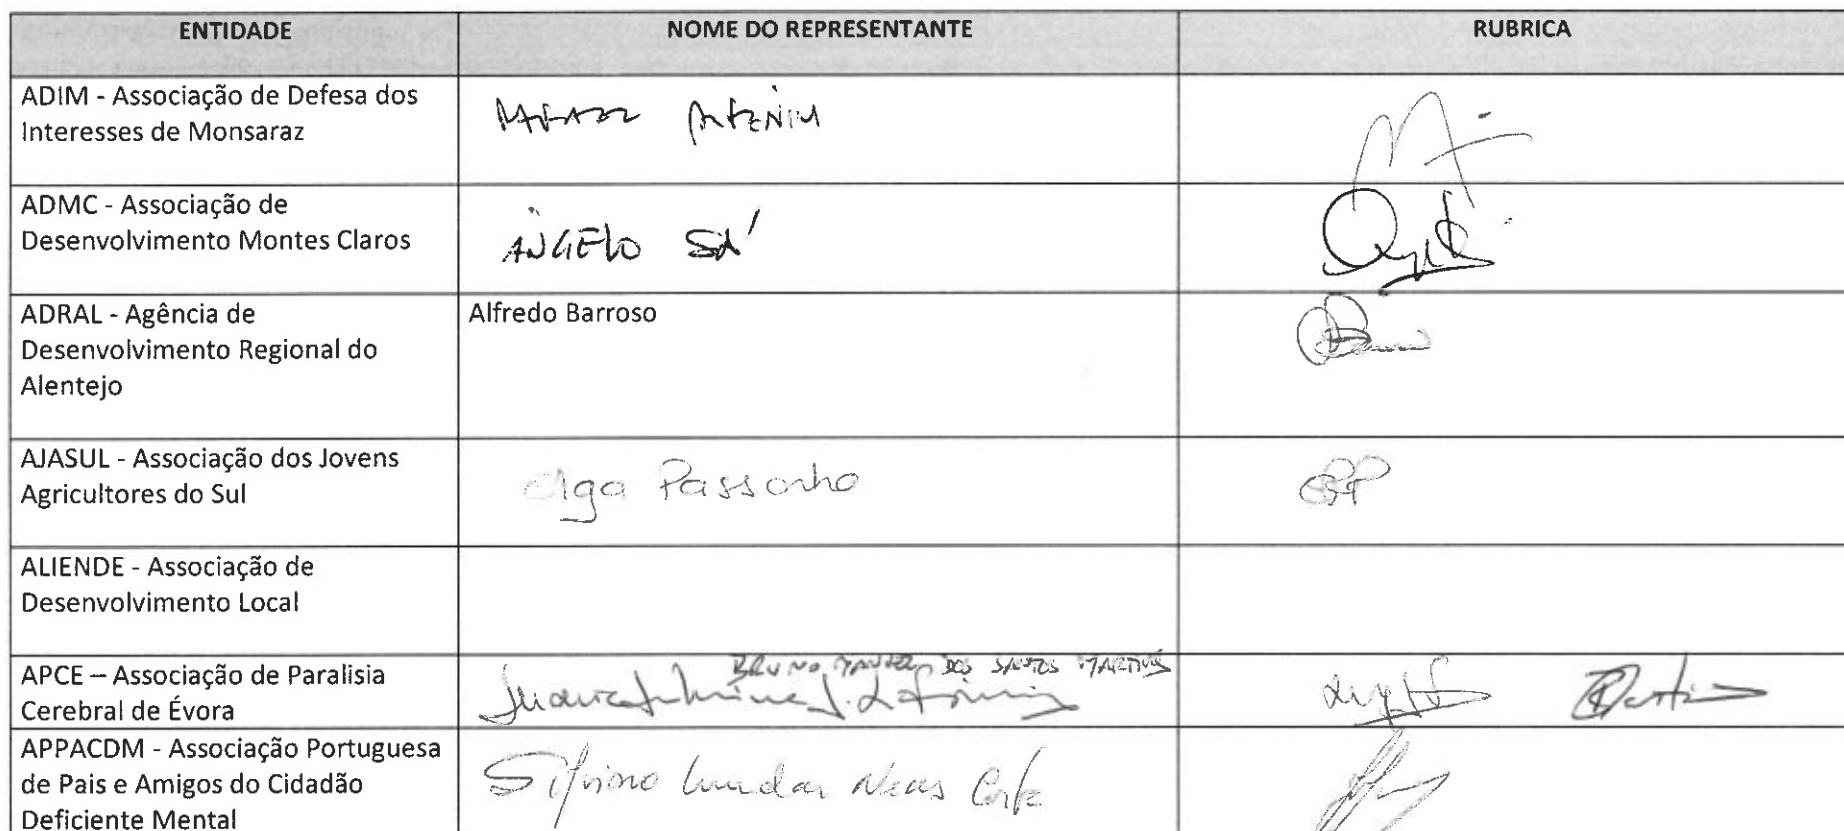 ENTIDADE
NOME DO REPRESENTANTE
RUBRICA
ADIM - Associação de Defesa dos
Interesses de Monsaraz
ADMC - Associação de
Desenvolvimento Montes Claros
ÂNGELO SÁ
ADRAL - Agência de
Desenvolvimento Regional do
Alentejo
Alfredo Barroso
AJASUL - Associação dos Jovens
Agricultores do Sul
Olga Passonho
ALIENDE - Associação de
Desenvolvimento Local
APCE – Associação de Paralisia
Cerebral de Évora
BRUNO MANUEL DOS SANTOS MARTINS
APPACDM - Associação Portuguesa
de Pais e Amigos do Cidadão
Deficiente Mental